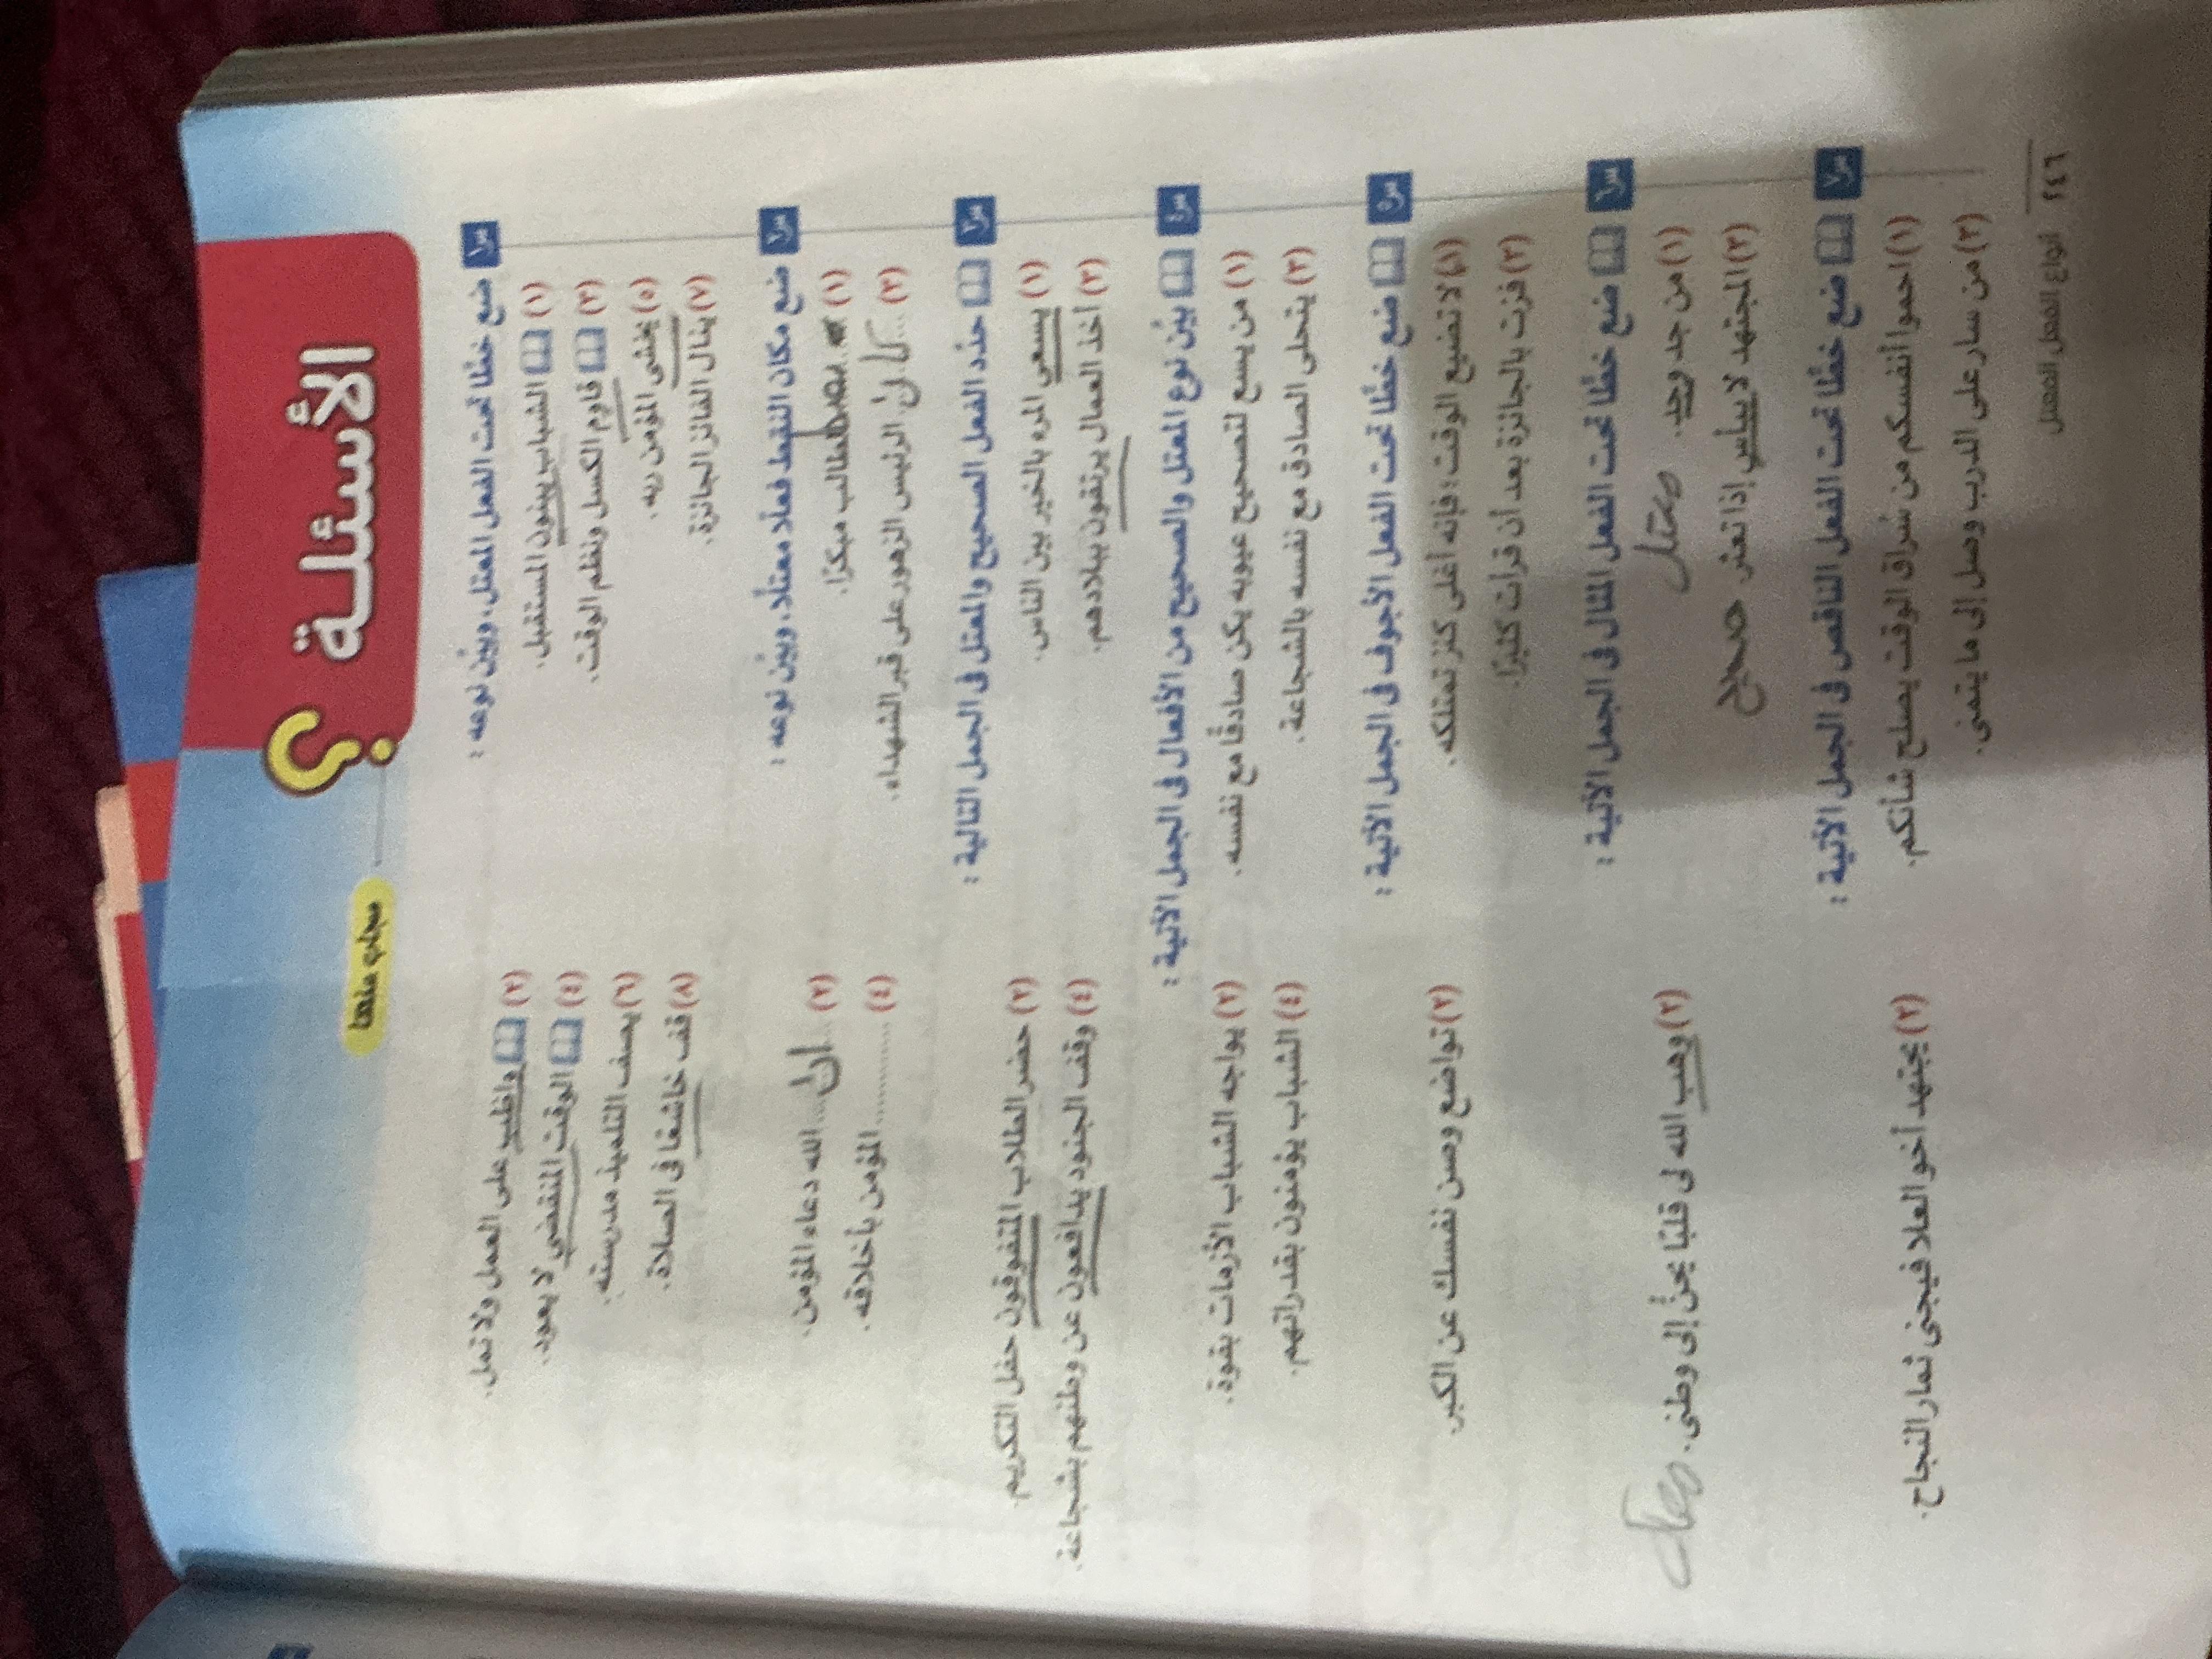 الأسئلة
؟
مجاب عنها
س١ ضع خطًّا تحت الفعل المعتل، وبيِّن نوعه :
(١) الشباب يبنون المستقبل.
(٢) واظب على العمل ولا تمل.
(٣) قاوم الكسل ونظم الوقت.
(٤) الوقت المنقضي لا يعود.
(٥) يخشى المؤمن ربه.
(٦) يصف التلميذ مدرسته.
(٧) ينال الفائز الجائزة.
(٨) قف خاشعًا في الصلاة.
س٢ ضع مكان النقط فعلًا معتلًا، وبيِّن نوعه :
(١) الطالب مبكرًا.
(٢) ...... الله دعاء المؤمن.
(٣) ...... الرئيس الزهور على قبر الشهداء.
(٤) ............ المؤمن بأخلاقه.
س٣ حدِّد الفعل الصحيح والمعتل في الجمل التالية :
(١) يسعى المرء بالخير بين الناس.
(٢) حضر الطلاب المتفوقون حفل التكريم.
(٣) أخذ العمال يرتقون ببلادهم.
(٤) وقف الجنود يدافعون عن وطنهم بشجاعة.
س٤ بيِّن نوع المعتل والصحيح من الأفعال في الجمل الآتية :
(١) من يسع لتصحيح عيوبه يكن صادقًا مع نفسه.
(٢) يواجه الشباب الأزمات بقوة.
(٣) يتحلى الصادق مع نفسه بالشجاعة.
(٤) الشباب يؤمنون بقدراتهم.
س٥ ضع خطًّا تحت الفعل الأجوف في الجمل الآتية :
(١) لا تضيع الوقت؛ فإنه أغلى كنز تمتلكه.
(٢) تواضع وصن نفسك عن الكبر.
(٣) فزت بالجائزة بعد أن قرأت كثيرًا.
س٦ ضع خطًّا تحت الفعل المثال في الجمل الآتية :
(١) من جد وجد. معتل
(٢) وهب الله لي قلبًا يحنُّ إلى وطني. معتل
(٣) المجتهد لا ييأس إذا تعثر. صحيح
س٧ ضع خطًّا تحت الفعل الناقص في الجمل الآتية :
(١) احموا أنفسكم من سُراق الوقت يصلح شأنكم.
(٢) يجتهد أخو العلا فيجني ثمار النجاح.
(٣) من سار على الدرب وصل إلى ما يتمنى.
٢٤٦ أنواع الفعل المعتل